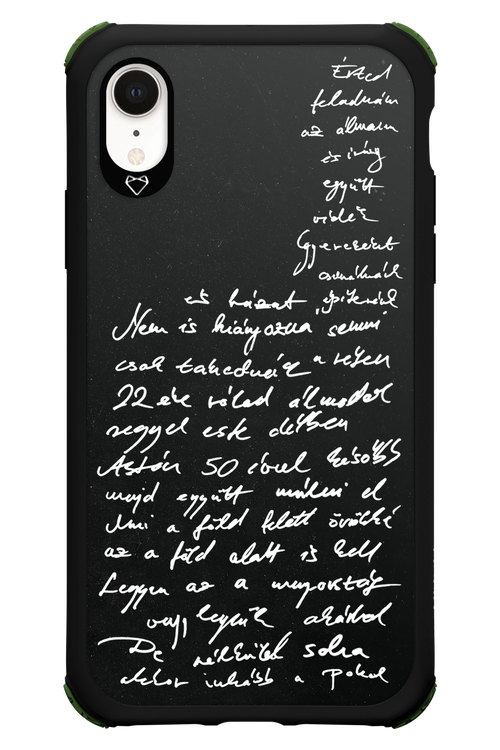 Érted
feladnám
az álmaim
és irány
együtt
vidék
Gyereket
csinálnánk
és házat építenénk
Nem is hiányozna semmi
csak takaródnék a
22 éve rólad álmodok
reggel este délben
Aztán 50 évvel később
majd együtt múlni el
Ami a föld felett örökké
az a föld alatt is kell
Legyen az a mennyország
vagy legyünk akárhol
De nélküled soha
akkor inkább a pokol